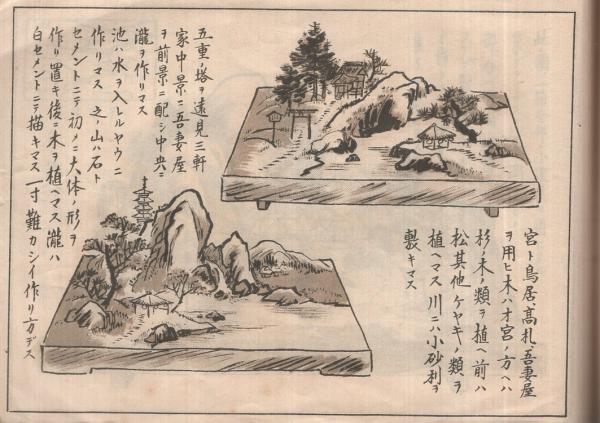 宮ト鳥居、高札、吾妻屋
ヲ用ヒ木ハオ宮ノ方ヘハ
杉ノ木ノ類ヲ植ヘ前ハ
松其他ケヤキノ類ヲ
植ヘマス川ニハ小砂利ヲ
敷キマス
五重ノ塔ヲ遠見三軒
家中景ニ吾妻屋
ヲ前景ニ配シ中央ニ
瀧ヲ作リマス
池ハ水ヲ入レルヤウニ
作リマス之ノ山ハ石ト
セメントニテ初メニ大体ノ形ヲ
作リ置キ後ニ木ヲ植ヘマス瀧ハ
白セメントニテ描キマス一寸難カシイ作リ方デス